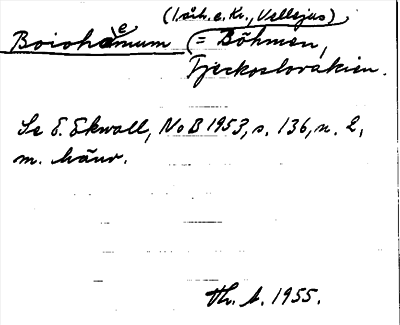 (1 årh. e. Kr., Vellejus)
Boiohaemum (= Böhmen,
Tjeckoslovakien.
Se E. Ekwall, NoB 1953, s. 136, n. 2,
m. hänv.
Th. A. 1955.